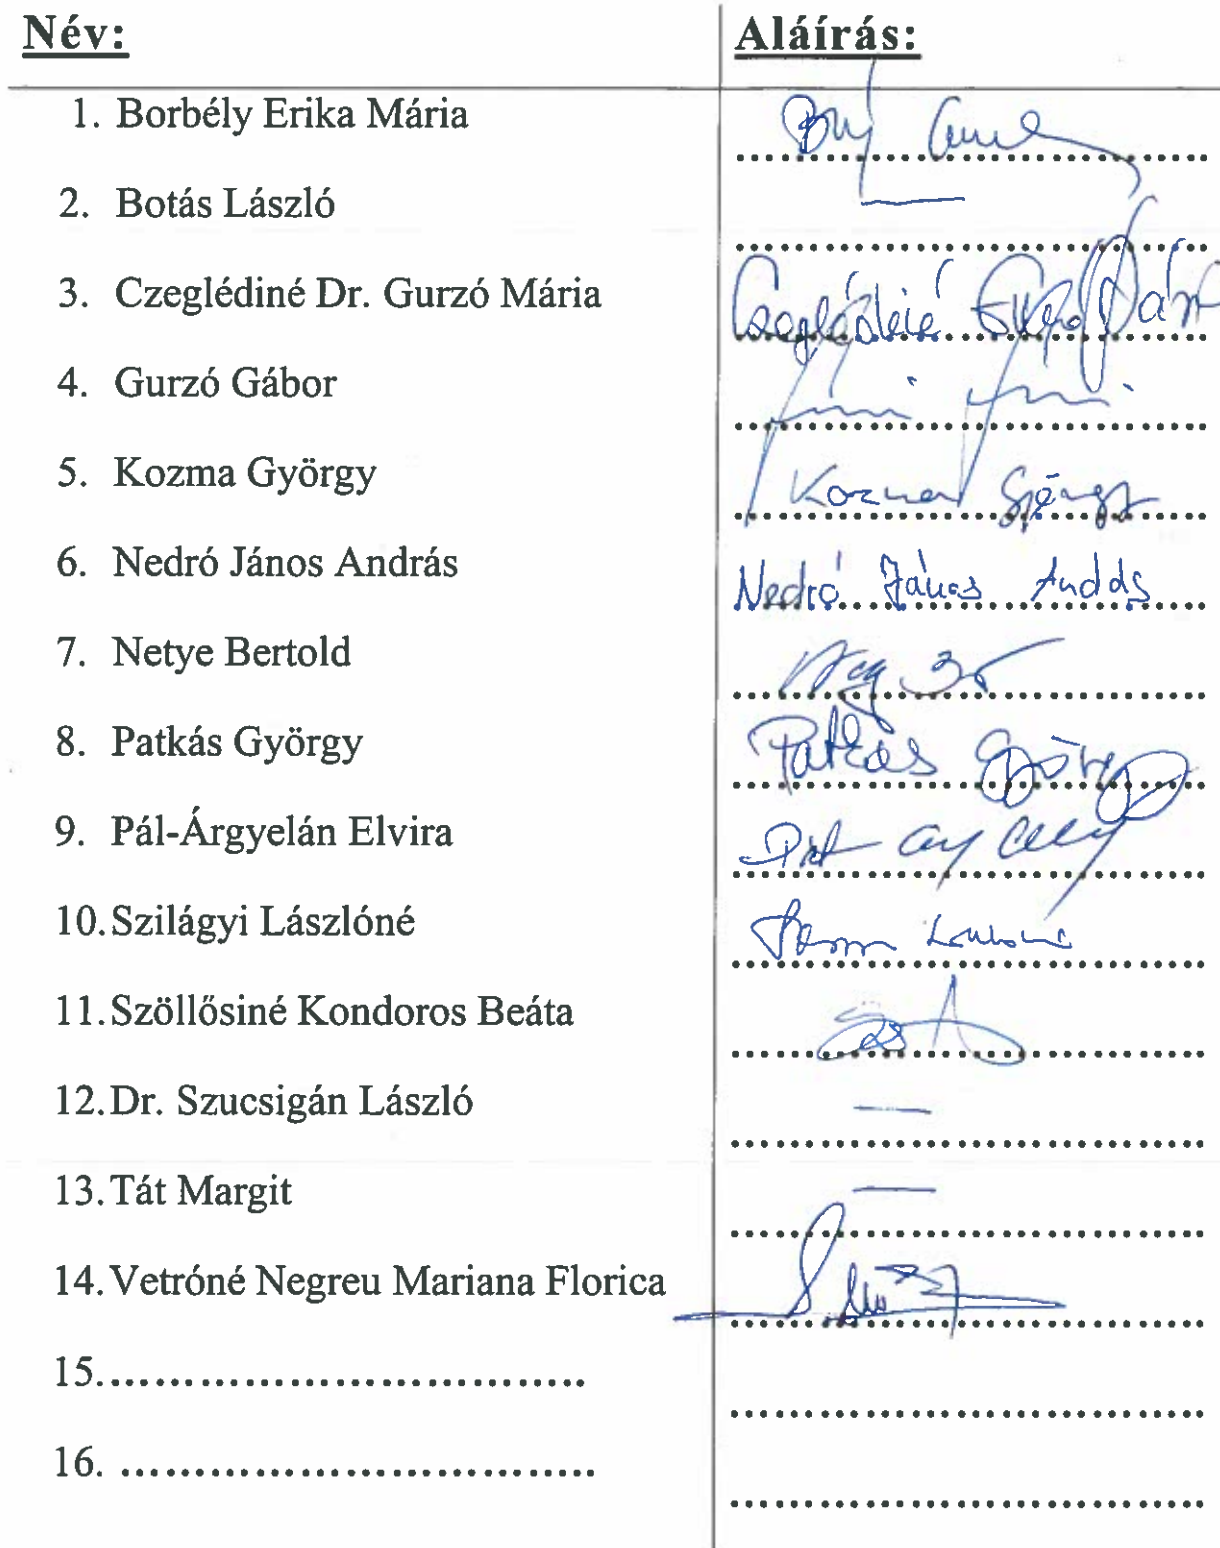 Név: Aláírás:
1. Borbély Erika Mária
2. Botás László —
3. Czeglédiné Dr. Gurzó Mária Czeglédiné Gurzó Mária
4. Gurzó Gábor
5. Kozma György Kozma György
6. Nedró János András Nedró János András
7. Netye Bertold
8. Patkás György Patkás György
9. Pál-Árgyelán Elvira
10. Szilágyi Lászlóné
11. Szöllősiné Kondoros Beáta
12. Dr. Szucsigán László —
13. Tát Margit —
14. Vetróné Negreu Mariana Florica
15. ................................
16. ................................